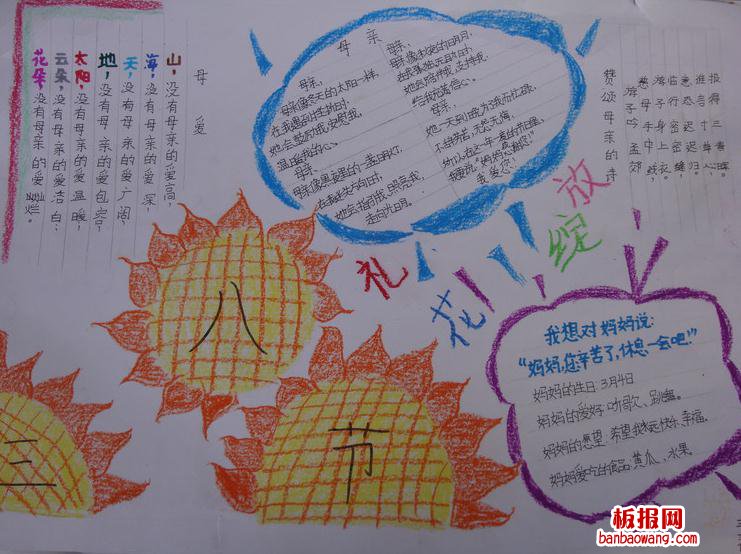 母爱
山，没有母亲的爱高，
海，没有母亲的爱深，
天，没有母亲的爱广阔，
地，没有母亲的爱包容，
太阳，没有母亲的爱温暖，
云朵，没有母亲的爱洁白，
花朵，没有母亲的爱灿烂。
母亲
母亲，
母亲像冬天的太阳一样，
在我遇到挫折时，
她会鼓励我，安慰我，
温暖我的心。
母亲，
母亲像黑夜里的一盏明灯，
在我迷失方向时，
她会指引我，照亮我，
走向光明。
母亲，
母亲像皎洁的明月，
在我孤独无助时，
她会陪伴我，支持我，
给我信心。
母亲，
她一天到晚为我忙碌，
不怕辛苦，无怨无悔，
所以在这一年一度的节日里，
我要说：“妈妈
我爱您！”
赞颂母亲的诗
游子吟 孟郊
慈母手中线，
游子身上衣。
临行密密缝，
意恐迟迟归。
谁言寸草心，
报得三春晖。
礼花绽放
三
八
节
我想对妈妈说：
“妈妈，您辛苦了，休息一会吧！”
妈妈的生日：3月4日
妈妈的爱好：唱歌、跳舞。
妈妈的愿望：希望我永远快乐、幸福。
妈妈爱吃的食品：黄瓜、水果
板报网
banbaowang.com